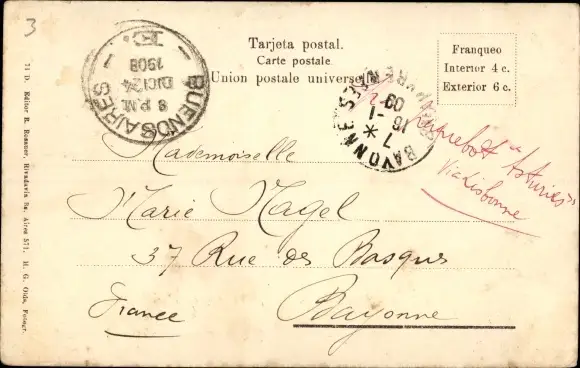 3
Tarjeta postal.
Carte postale.
Union postale universelle
Franqueo
Interior 4 c.
Exterior 6 c.
BUENOS AIRES
8 P.M.
DIC 24
1908
BAYONNE
7
16 -1
09
paquebot "Asturies"
Via Lisbonne
Mademoiselle
Marie Nagel
37 Rue des Basques
Bayonne
France
71 D. Editor R. Rosauer, Rivadavia Bs. Aires 571. H. G. Olds, Fotogr.